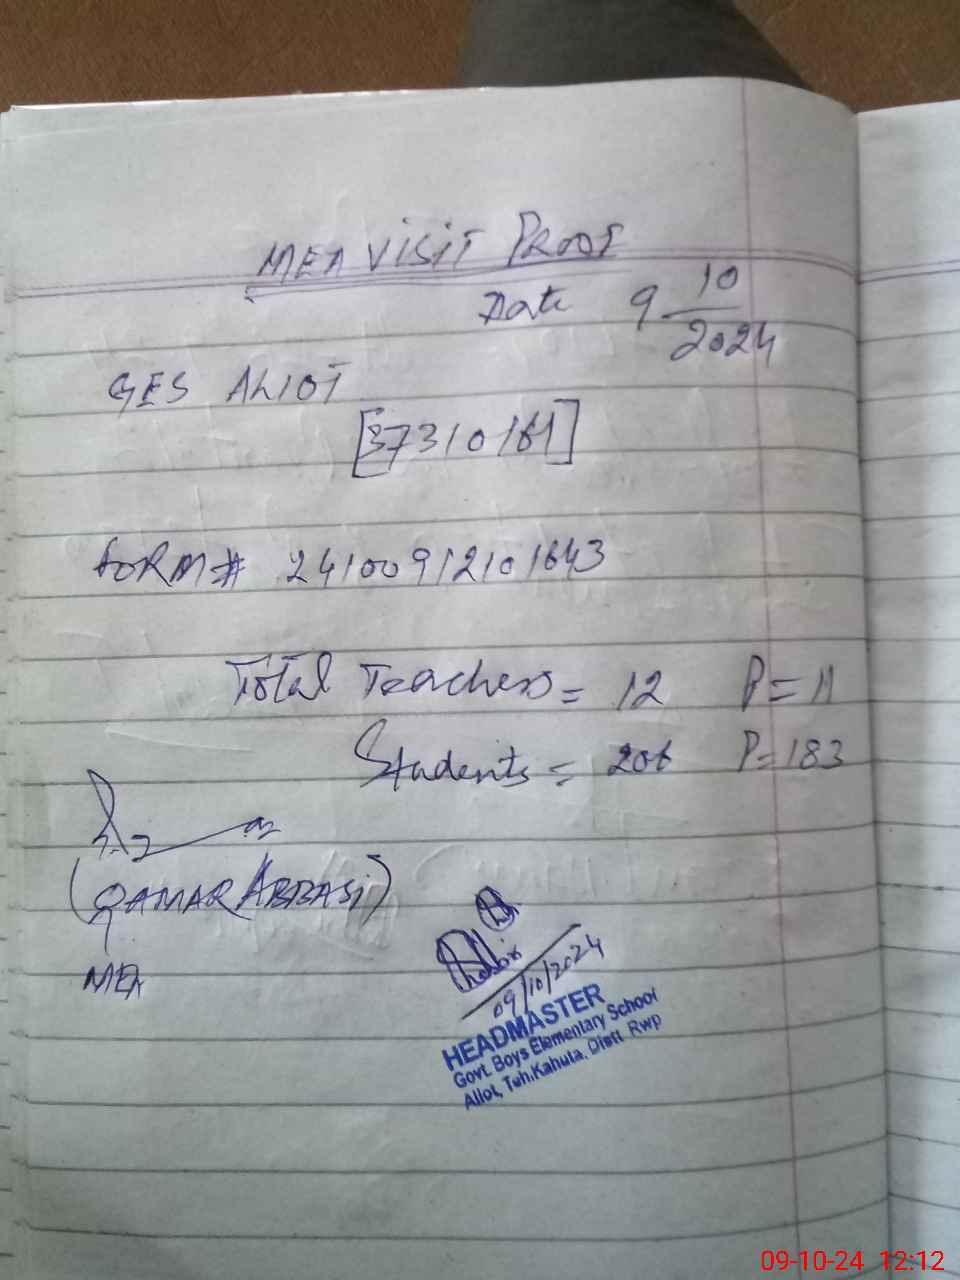 MEA VISIT PROOF
Date 9 10/2024
GES ALIOT
[37310161]
FORM# 24100912101643
Total Teachers = 12 P = 11
Students = 206 P = 183
(QAMAR ABBASi)
MEA
09/10/2024
HEADMASTER
Govt. Boys Elementary School
Aliot, Teh.Kahuta, Distt. Rwp
09-10-24 12:12